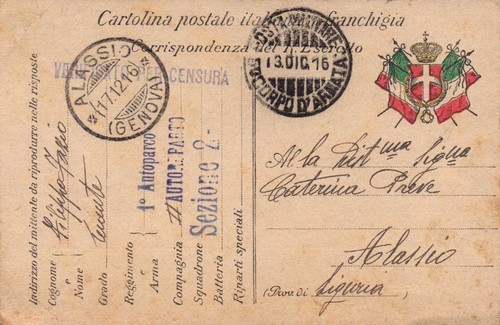 Cartolina postale italiana in franchigia
Corrispondenza del R. Esercito
POSTA MILITARE
13 DIC 16
CORPO D'ARMATA
ALASSIO
17.12.16
(GENOVA)
VERIFICATO PER CENSURA
Indirizzo del mittente da riprodurre nelle risposte
Cognome
e Nome
Filippo
Grado Tenente
Reggimento 1° Autoparco
Arma
Compagnia II AUTOREPARTO
Squadrone Sezione 2-
Batteria
Riparti speciali
Alla Dist.ma Sig.na
Caterina Preve
Alassio
(Prov. di Liguria)